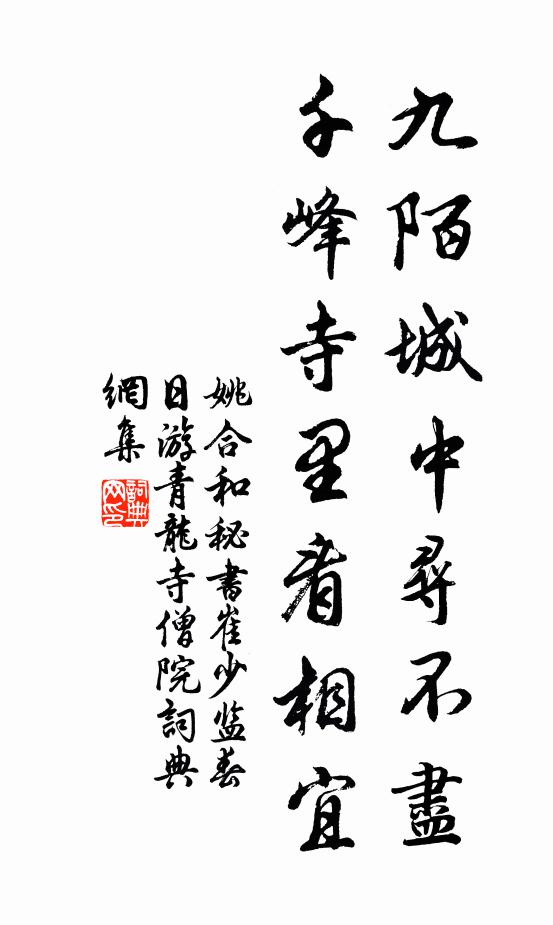 九陌城中尋不盡
千峰寺里看相宜
姚合和秘書崔少监春
日游青龍寺僧院詞典
網集
詞典
网印